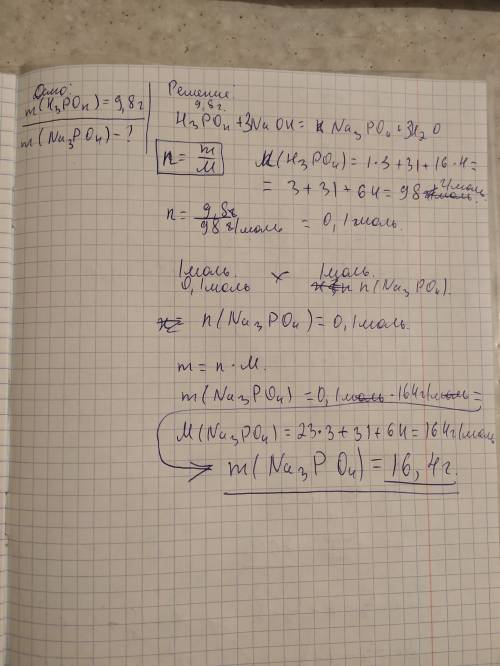 Дано:
m(H₃PO₄) = 9,8г
m(Na₃PO₄) - ?
Решение:
9,8г.
H₃PO₄ + 3NaOH = Na₃PO₄ + 3H₂O
n = m/M
M(H₃PO₄) = 1·3 + 31 + 16·4 =
= 3 + 31 + 64 = 98 г/моль
n = 9,8г / 98 г/моль = 0,1 моль
1 моль. x 1 моль.
0,1 моль n(Na₃PO₄).
n(Na₃PO₄) = 0,1 моль.
m = n · M.
m(Na₃PO₄) = 0,1 моль · 164 г/моль =
M(Na₃PO₄) = 23·3 + 31 + 64 = 164 г/моль
m(Na₃PO₄) = 16,4г.